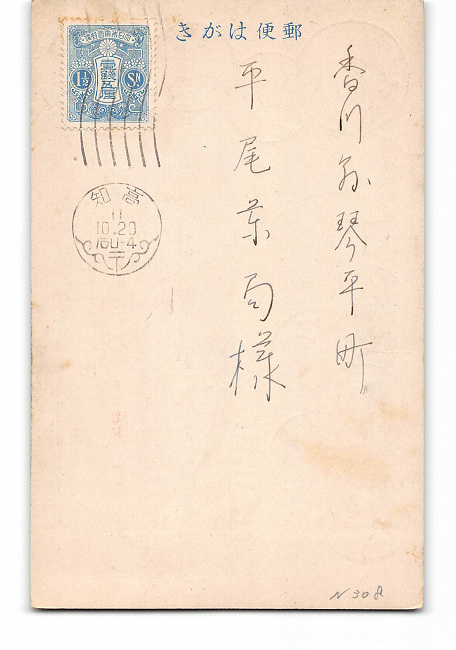 郵便はがき
香川縣琴平町
平尾薬局様
大日本帝國郵便
壹銭五厘
1½ Sn
高知
11
10.20
后0-4
N308